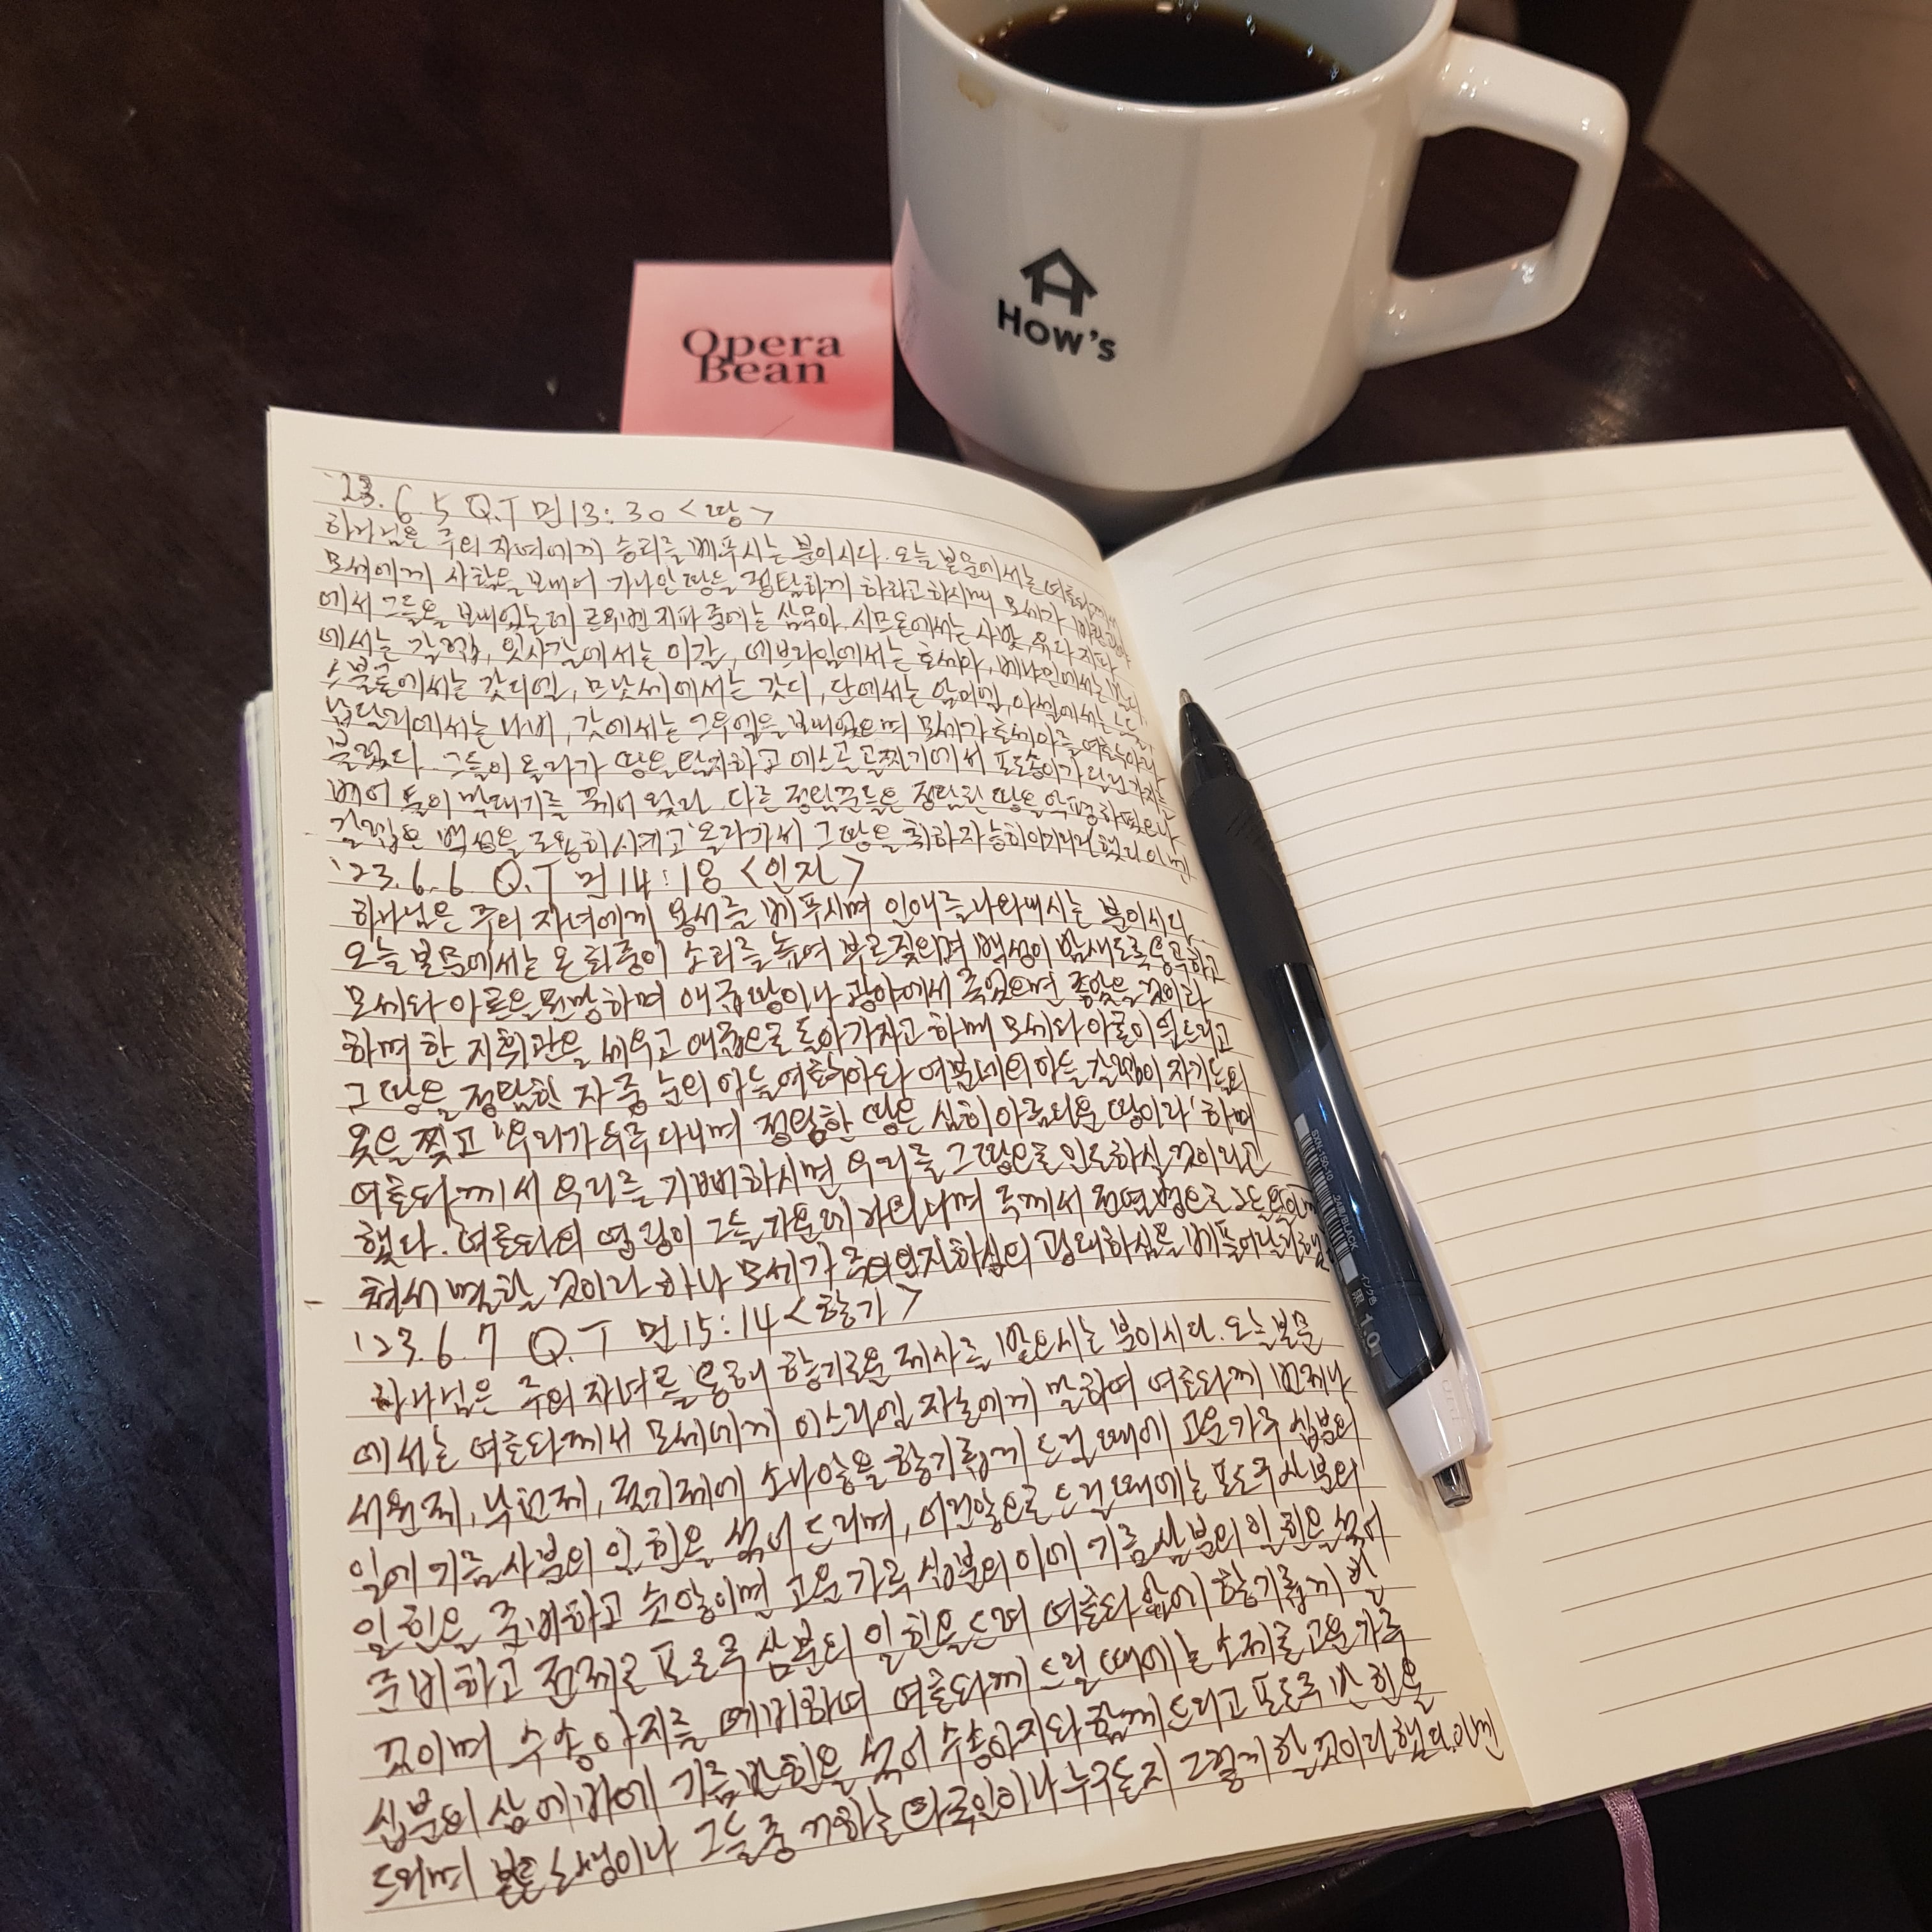 Opera
Bean
How's
'23. 6. 5 Q.T 민13:30 <땅>
하나님은 주의 자녀에게 승리를 베푸시는 분이시다. 오늘 본문에서는 여호와께서
모세에게 사람을 보내어 가나안 땅을 정탐하게 하라고 하시매 모세가 바란광야
에서 그들을 보내었는데 르우벤 지파 중에는 삼무아, 시므온에서는 사밧, 유다 지파
에서는 갈렙, 잇사갈에서는 이갈, 에브라임에서는 호세아, 베냐민에서는 발디,
스불론에서는 갓디엘, 므낫세에서는 갓디, 단에서는 암미엘, 아셀에서는 스둘,
납달리에서는 나비, 갓에서는 그우엘을 보내었으며 모세가 호세아를 여호수아라
불렀다. 그들이 올라가 땅을 탐지하고 에스골 골짜기에서 포도송이가 달린 가지를
베어 둘이 막대기를 꿰어 왔다. 다른 정탐꾼들은 정탐한 땅을 악평하였으나
갈렙은 백성을 조용히 시키고 '올라가서 그 땅을 취하자 능히 이기리라 했다. 아멘
'23. 6. 6 Q.T 민14:18 <인자>
하나님은 주의 자녀에게 용서를 베푸시며 인애를 나타내시는 분이시다.
오늘 본문에서는 온 회중이 소리를 높여 부르짖으며 백성이 밤새도록 통곡하고
모세와 아론을 원망하며 애굽땅이나 광야에서 죽었으면 좋았을 것이라
하며 한 지휘관을 세우고 애굽으로 돌아가자고 하매 모세와 아론이 엎드리고
그 땅을 정탐한 자 중 눈의 아들 여호수아와 여분네의 아들 갈렙이 자기들의
옷을 찢고 '우리가 두루 다니며 정탐한 땅은 심히 아름다운 땅이라' 하며
여호와께서 우리를 기뻐하시면 우리를 그 땅으로 인도하실 것이라고
했다. 여호와의 영광이 그들 가운데 나타나며 주께서 전염병으로
쳐서 멸할 것이라 하나 모세가 주의 인자하심의 광대하심을
'23. 6. 7 Q.T 민15:14 <향기>
하나님은 주의 자녀를 통해 향기로운 제사를 받으시는 분이시다. 오늘 본문
에서는 여호와께서 모세에게 이스라엘 자손에게 말하여 여호와께 번제나
서원제, 낙헌제, 절기제에 소나 양을 향기롭게 드릴 때에 고운 가루 십분의
일에 기름 사분의 일 힌을 섞어 드리며, 어린양으로 드릴 때에는 포도주 사분의
일 힌을 준비하고 숫양이면 고운 가루 십분의 이에 기름 삼분의 일 힌을 섞어
준비하고 전제로 포도주 삼분의 일 힌을 드려 여호와 앞에 향기롭게 할
것이며 수송아지를 예비하여 여호와께 드릴 때에는 소제로 고운 가루
십분의 삼 에바에 기름 반 힌을 섞어 수송아지와 함께 드리고 포도주 반 힌을
드리며 본토 소생이나 그들 중 거하는 타국인이나 누구든지 그렇게 할 것이라 했다. 아멘
SXN-150-10
24 黒 BLACK
インク色
黒 1.0
uni